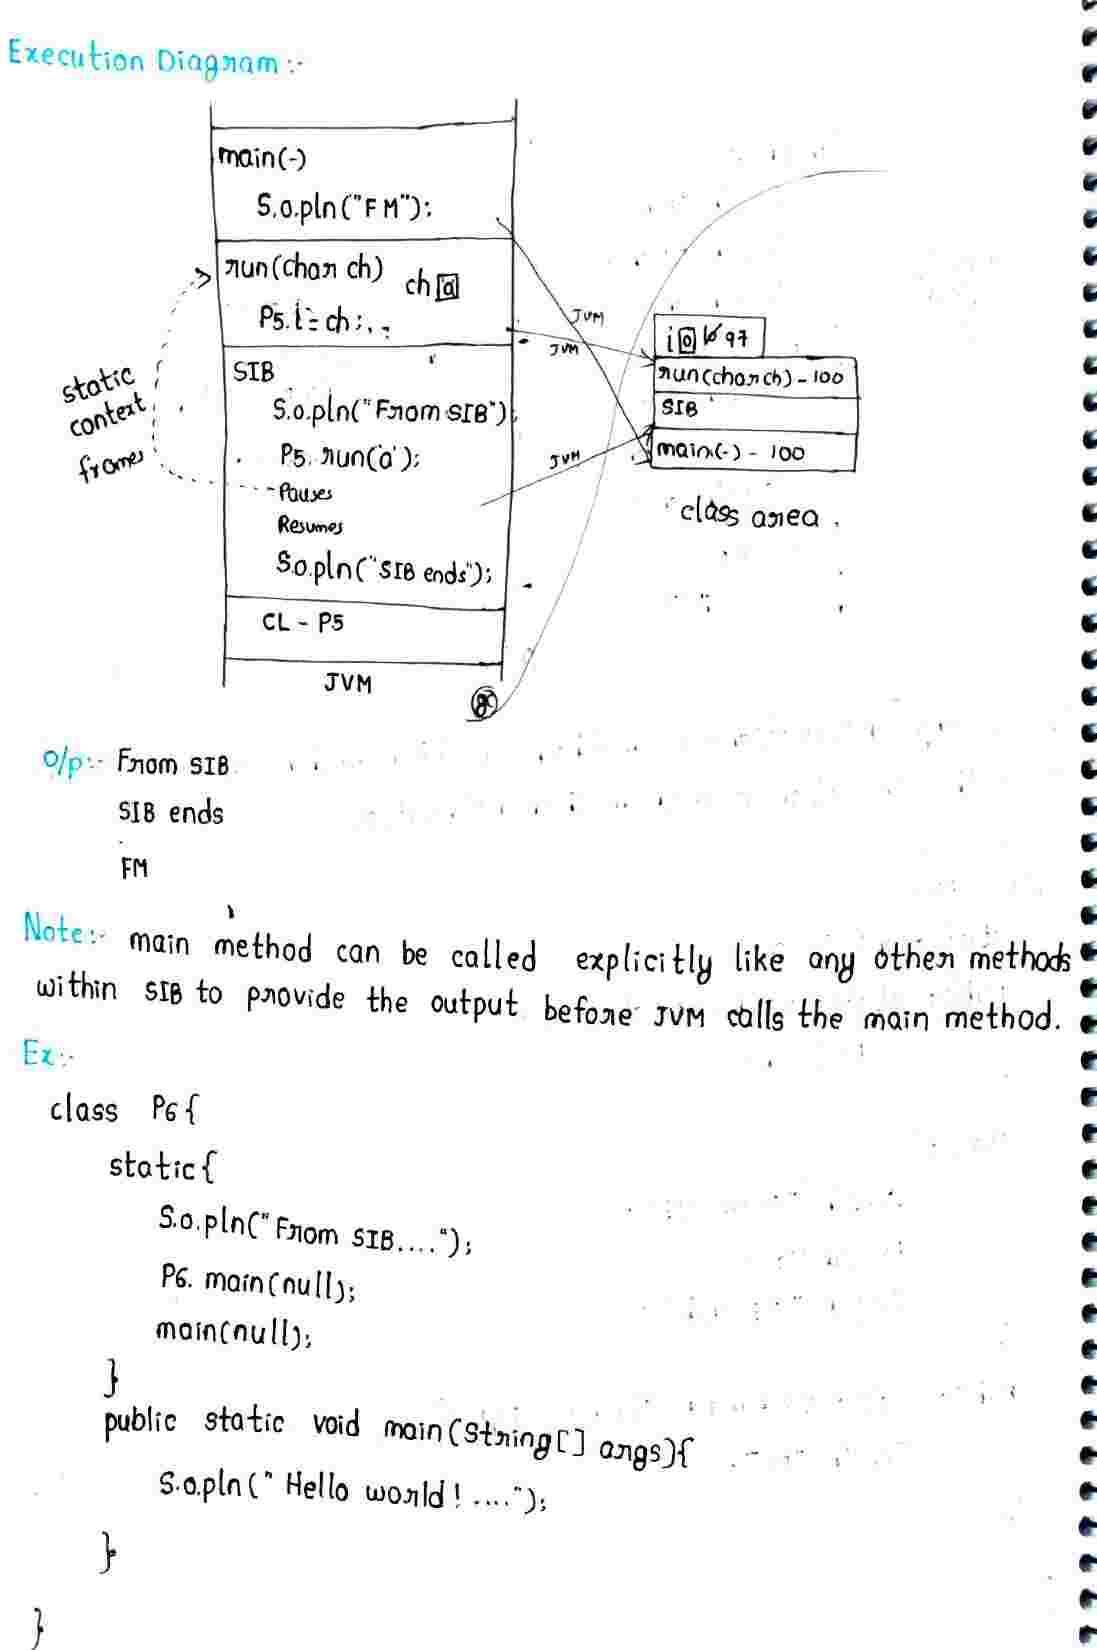 Execution Diagram :-
main(-)
S.o.pln("FM");
run(char ch) ch a
P5.i = ch ; . .
SIB
S.o.pln("From SIB");
P5. run('a');
Pauses
Resumes
S.o.pln("SIB ends");
CL - P5
JVM
static
context
frames
JVM
JVM
JVM
i 0 97
run(char ch) - 100
SIB
main(-) - 100
class area .
o/p :- From SIB
SIB ends
FM
Note :- main method can be called explicitly like any other methods
within SIB to provide the output before JVM calls the main method.
Ex :-
class P6 {
static {
S.o.pln("From SIB....");
P6. main(null);
main(null);
}
public static void main(String[] args){
S.o.pln(" Hello world ! ....");
}
}